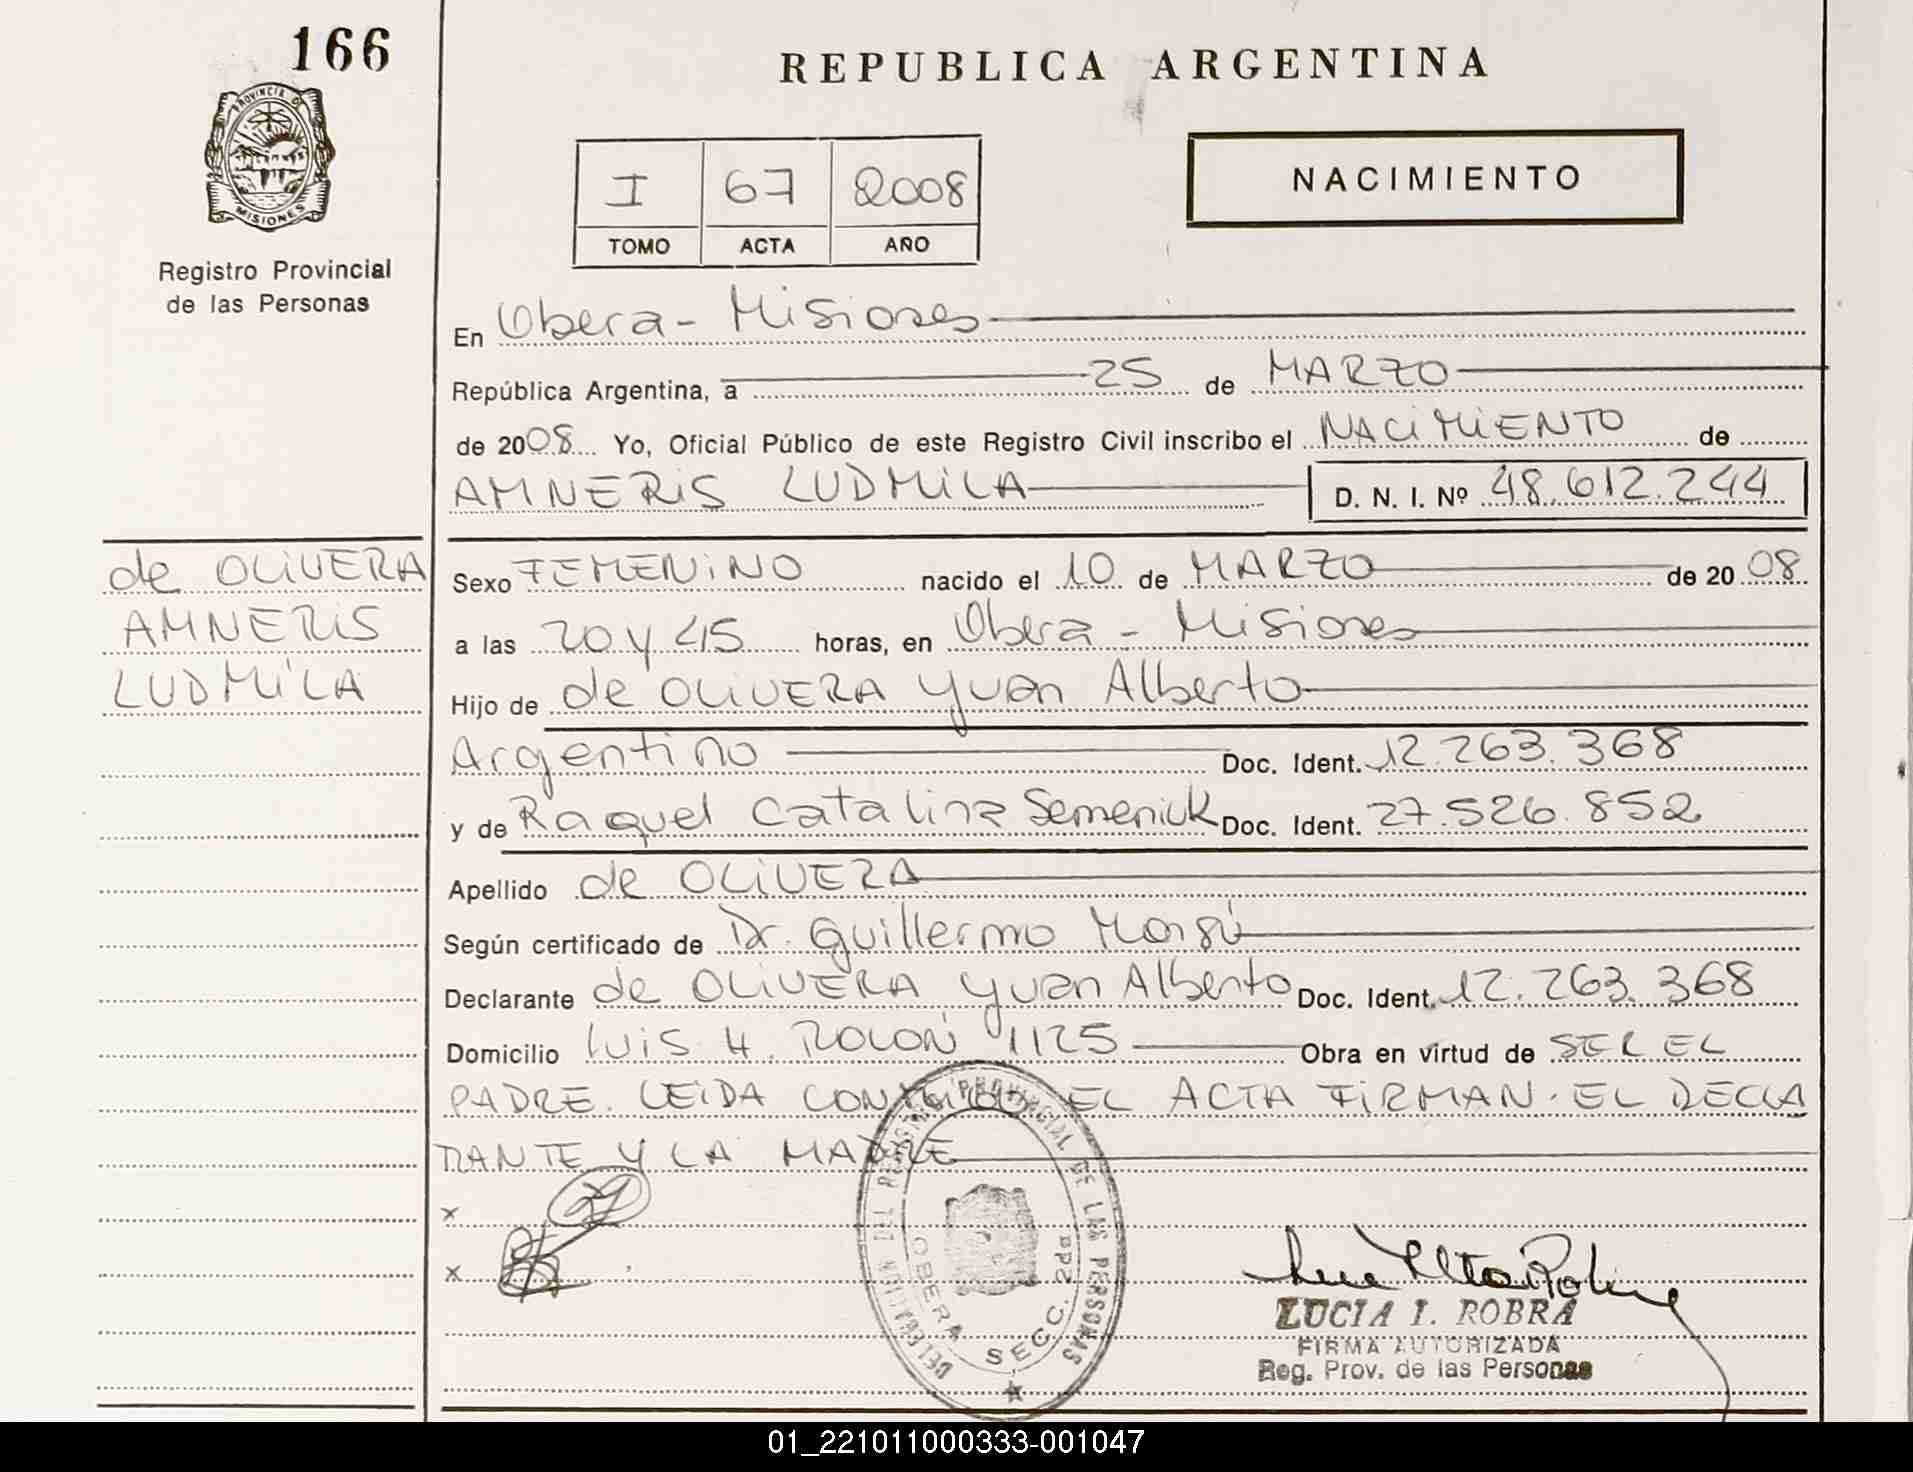 166
PROVINCIA DE
MISIONES
Registro Provincial
de las Personas
REPUBLICA ARGENTINA
I 67 2008
TOMO ACTA AÑO
NACIMIENTO
En Obera - Misiones
República Argentina, a 25 de MARZO
de 2008 Yo, Oficial Público de este Registro Civil inscribo el NACIMIENTO de
AMNERIS LUDMILA D. N. I. Nº 48.612.244
de OLIVERA
AMNERIS
LUDMILA
Sexo FEMENINO nacido el 10 de MARZO de 2008
a las 20 y 45 horas, en Obera - Misiones
Hijo de de OLIVERA Yuan Alberto
Argentino Doc. Ident. 12.263.368
y de Raquel Catalina Semeniuk Doc. Ident. 27.526.852
Apellido de OLIVERA
Según certificado de Dr. Guillermo
Declarante de OLIVERA Yuan Alberto Doc. Ident. 12.263.368
Domicilio Luis H. ROLON 1125 Obra en virtud de SER EL
PADRE. LEIDA EL ACTA FIRMAN. EL DECLA
RANTE Y LA MADRE
x
x
DELEGACION DEL REGISTRO PROVINCIAL DE LAS PERSONAS
OBERA SECC. 2da
LUCIA I. ROBRA
FIRMA AUTORIZADA
Reg. Prov. de las Personas
01_221011000333-001047